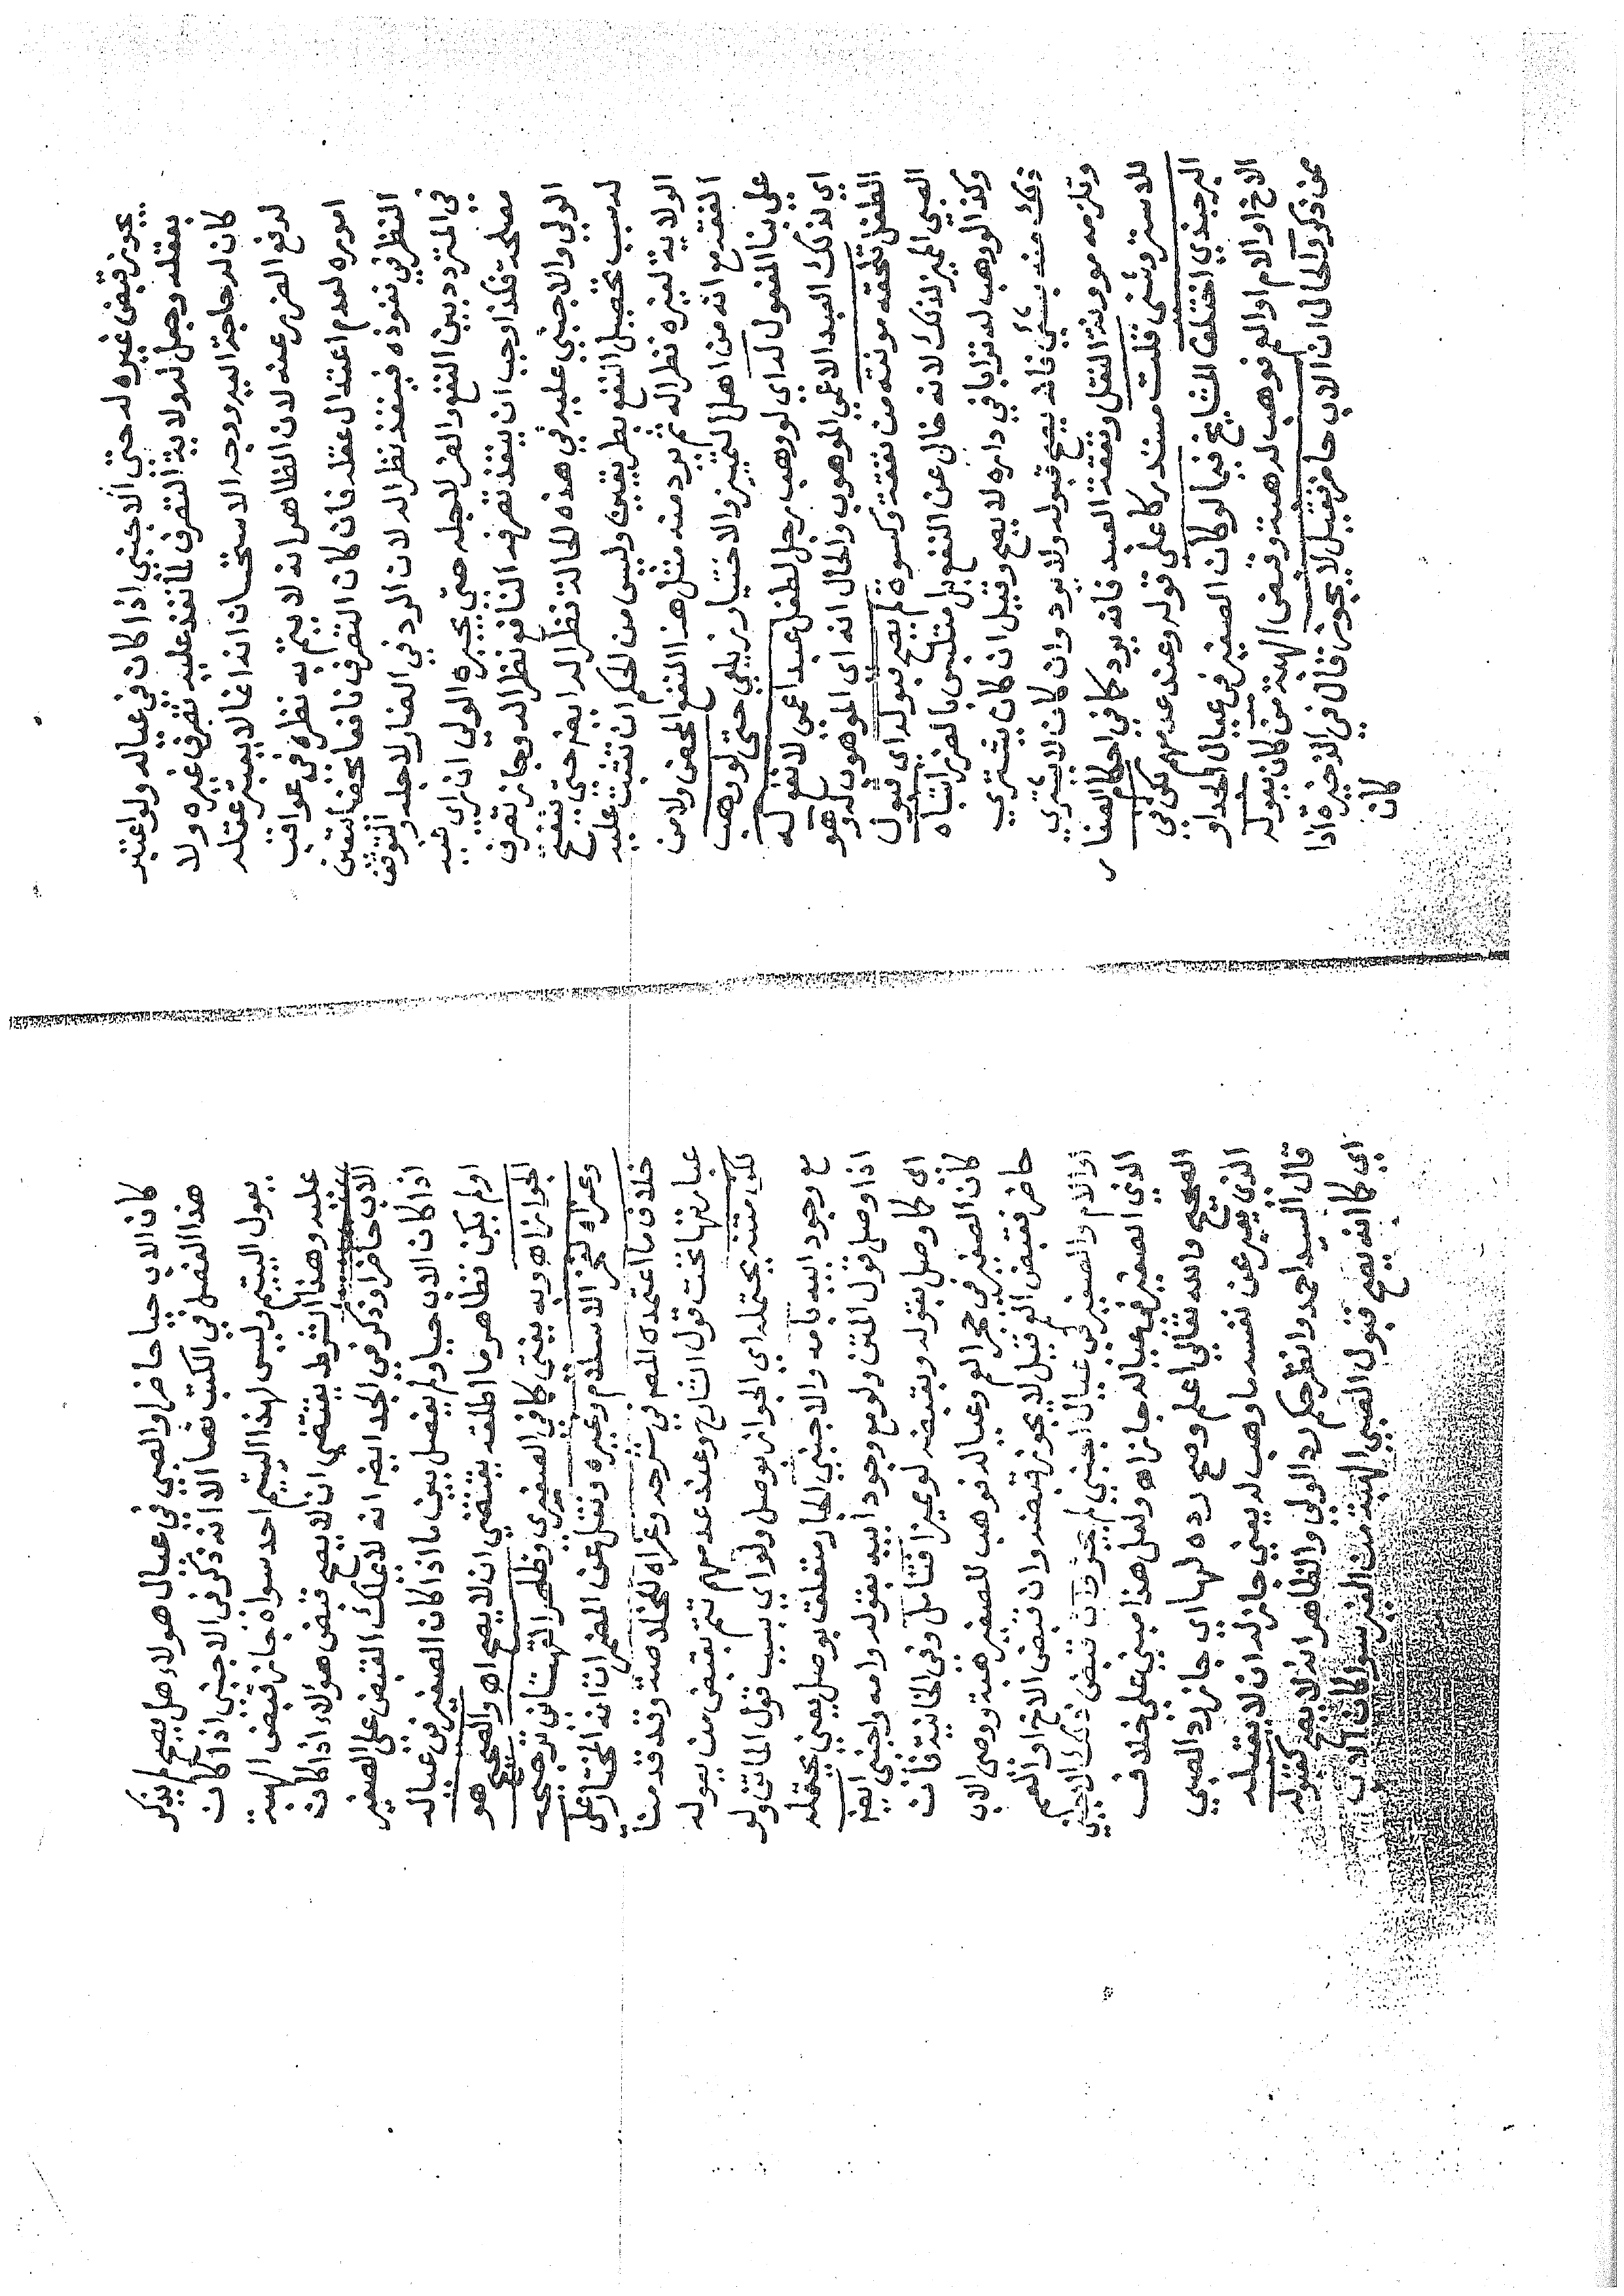 يجوز قبض غيره له حتى الاجنبي اذا كان في عياله ولو اعتبر
بعقله وجعل له ولاية التصرف لما نفذ عليه تصرف غيره ولا
كان له حاجة اليه ووجه الاستحسان انه انما لا يعتبر عقله
لدفع الضرر عنه لان الظاهر انه لا يتم به نظره في عواقب
اموره لعدم اعتدال عقله فان كان التصرف نافعا محضا تعين
النظر في نفوذه فينفذ نظرا له لان الرد في الضار لاجله والتوقف
في المتردد بين النفع والضر لاجله حتى يجيزه الولي ان راى فيه
مصلحة فكذا وجب ان ينفذ تصرفه النافع نظرا له وجاز تصرف
الولي والاجنبي عليه في هذه الحالة نظرا له ايضا حتى ينفتح
له سبب تحصيل النفع بطريقين وليس من الحكم ان تثبت عليه
الولاية لغيره نظرا له ثم يرد منه مثل هذا النفع المحض ولان
الفقه مع انه من اهل التمييز والاختيار زيلعي حتى لو وهب
على بنا المفعول له اي لو وهب رجل لطفل عبدا عمى لا نفع له
اي لذلك العبد الاعمى الموهوب والحال انه اي الموهوب له وهو
الطفل تلحقه مونته من نفقته وكسوة لم يصح قبوله اي قبول
الصبي المميز لذلك لانه خال عن النفع بل متلبس بالضر اشباه
وكذا لو وهب له ترابا في داره لا يصح وقيل ان كان يشتري
ذلك منه بشئ فانه يصح قبوله ولا يرد وان كان لا يشتري
وتلزمه موونة النقل ونفقة العبد فانه يرد كما في احكام الصغار
للاستروشني قلت مستدركا على قوله وعند عدمهم لكن في
البرجندي اختلف المشايخ فيما لو كان الصغير في عيال الجد او
الاخ او الام او العم فوهب له هبة وقبض الهبة من كان يعوله
ممن ذكر والحال ان الاب حاضر فقيل لا يجوز قال في الذخيرة اذا
كان
كان الاب حيا حاضرا والصبي في عيال هولاء هل يصح لم يذكر
هذا الفصل في الكتب نصا الا انه ذكر في الاجنبي اذا كان
يعول اليتيم وليس لهذا اليتيم احد سواه جاز قبض الهبة
عليه وهذا الشرط يقتضي ان لا يصح قبض هؤلاء اذا كان
الاب حاضرا وذكر في الجد ايضا انه لا يملك القبض على الصغير
اذا كان الاب حيا ولم يفصل بين ما اذا كان الصغير في عياله
او لم يكن فظاهر ما اطلقه يقتضي ان لا يصح اه والصحيح هو
الجواز اه وبه يفتى كما في الصغرى وظاهر القهستاني ترجيحه
وعزاه لفخر الاسلام وغيره ونقل عن المضمرات انه المختار على
خلاف ما اعتمده المص في شرحه وعزاه للخلاصة وقد قدمنا
عبارتها تحت قول الشارح وعند عدمهم تتم بقبض من يعوله
لكن متنه يحتمله اي الجواز بوصل ولو اي بسبب قول الماتن ولو
مع وجود ابيه بامه والاجنبي الجار متعلق بوصل يعني يحتمله
اذا وصل قول المتن ولو مع وجود ابيه بقوله وامه واجنبي ايضا
اي كما وصل بقوله وبقبضه لو مميزا فتامل وفي الخانية فان
كان الصغير في حجر العم وعياله فوهب للصغير هبة ووصى الاب
حاضر فقبض العم قيل لا يجوز قبضه وان قبض الاخ او العم
او الام والصغير في عيال اجنبي لم يجز وان قبض ذلك الاجنبي
الذي الصغير في عياله جاز اه ولعل هذا مبني على خلاف
الصحيح والله تعالى اعلم وصح رده لها اي جاز رد الصبي
الذي يعبر عن نفسه ما وهب له يعني جاز له ان لا يقبله
قال السيد احمد وانظر حكم رد الولي والظاهر انه لا يصح كقبوله
اي كما انه يصح قبول الصبي الهبة من الغير سوا كان الاب